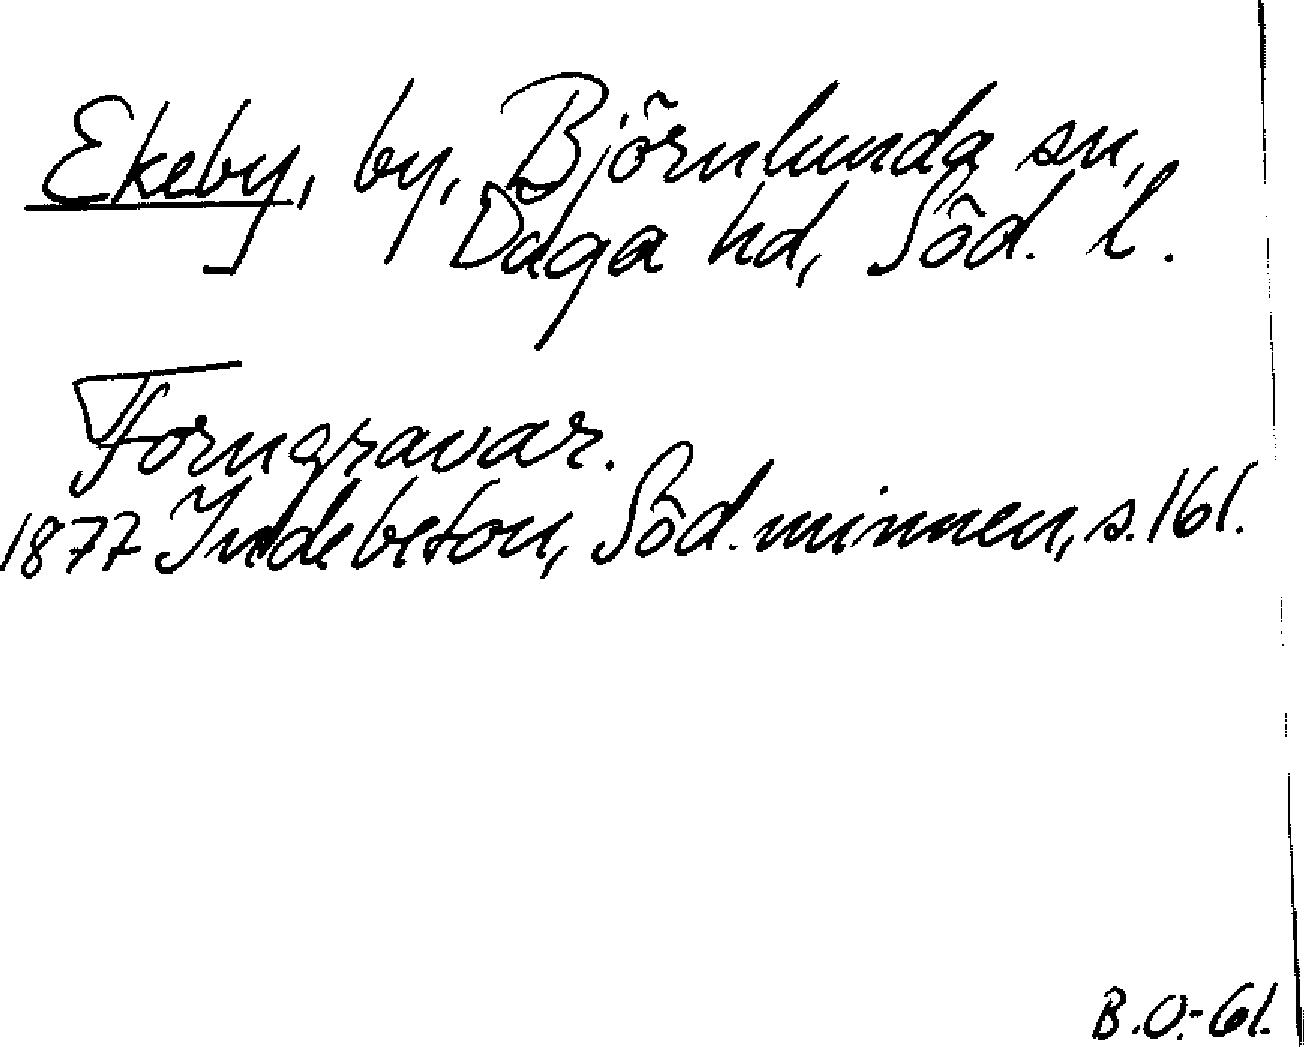 Ekeby, by, Björnlunda sn,
Daga hd, Söd. l.
Forngravar.
1877 Indebetou, Söd. minnen, s. 161.
B.O.-61.